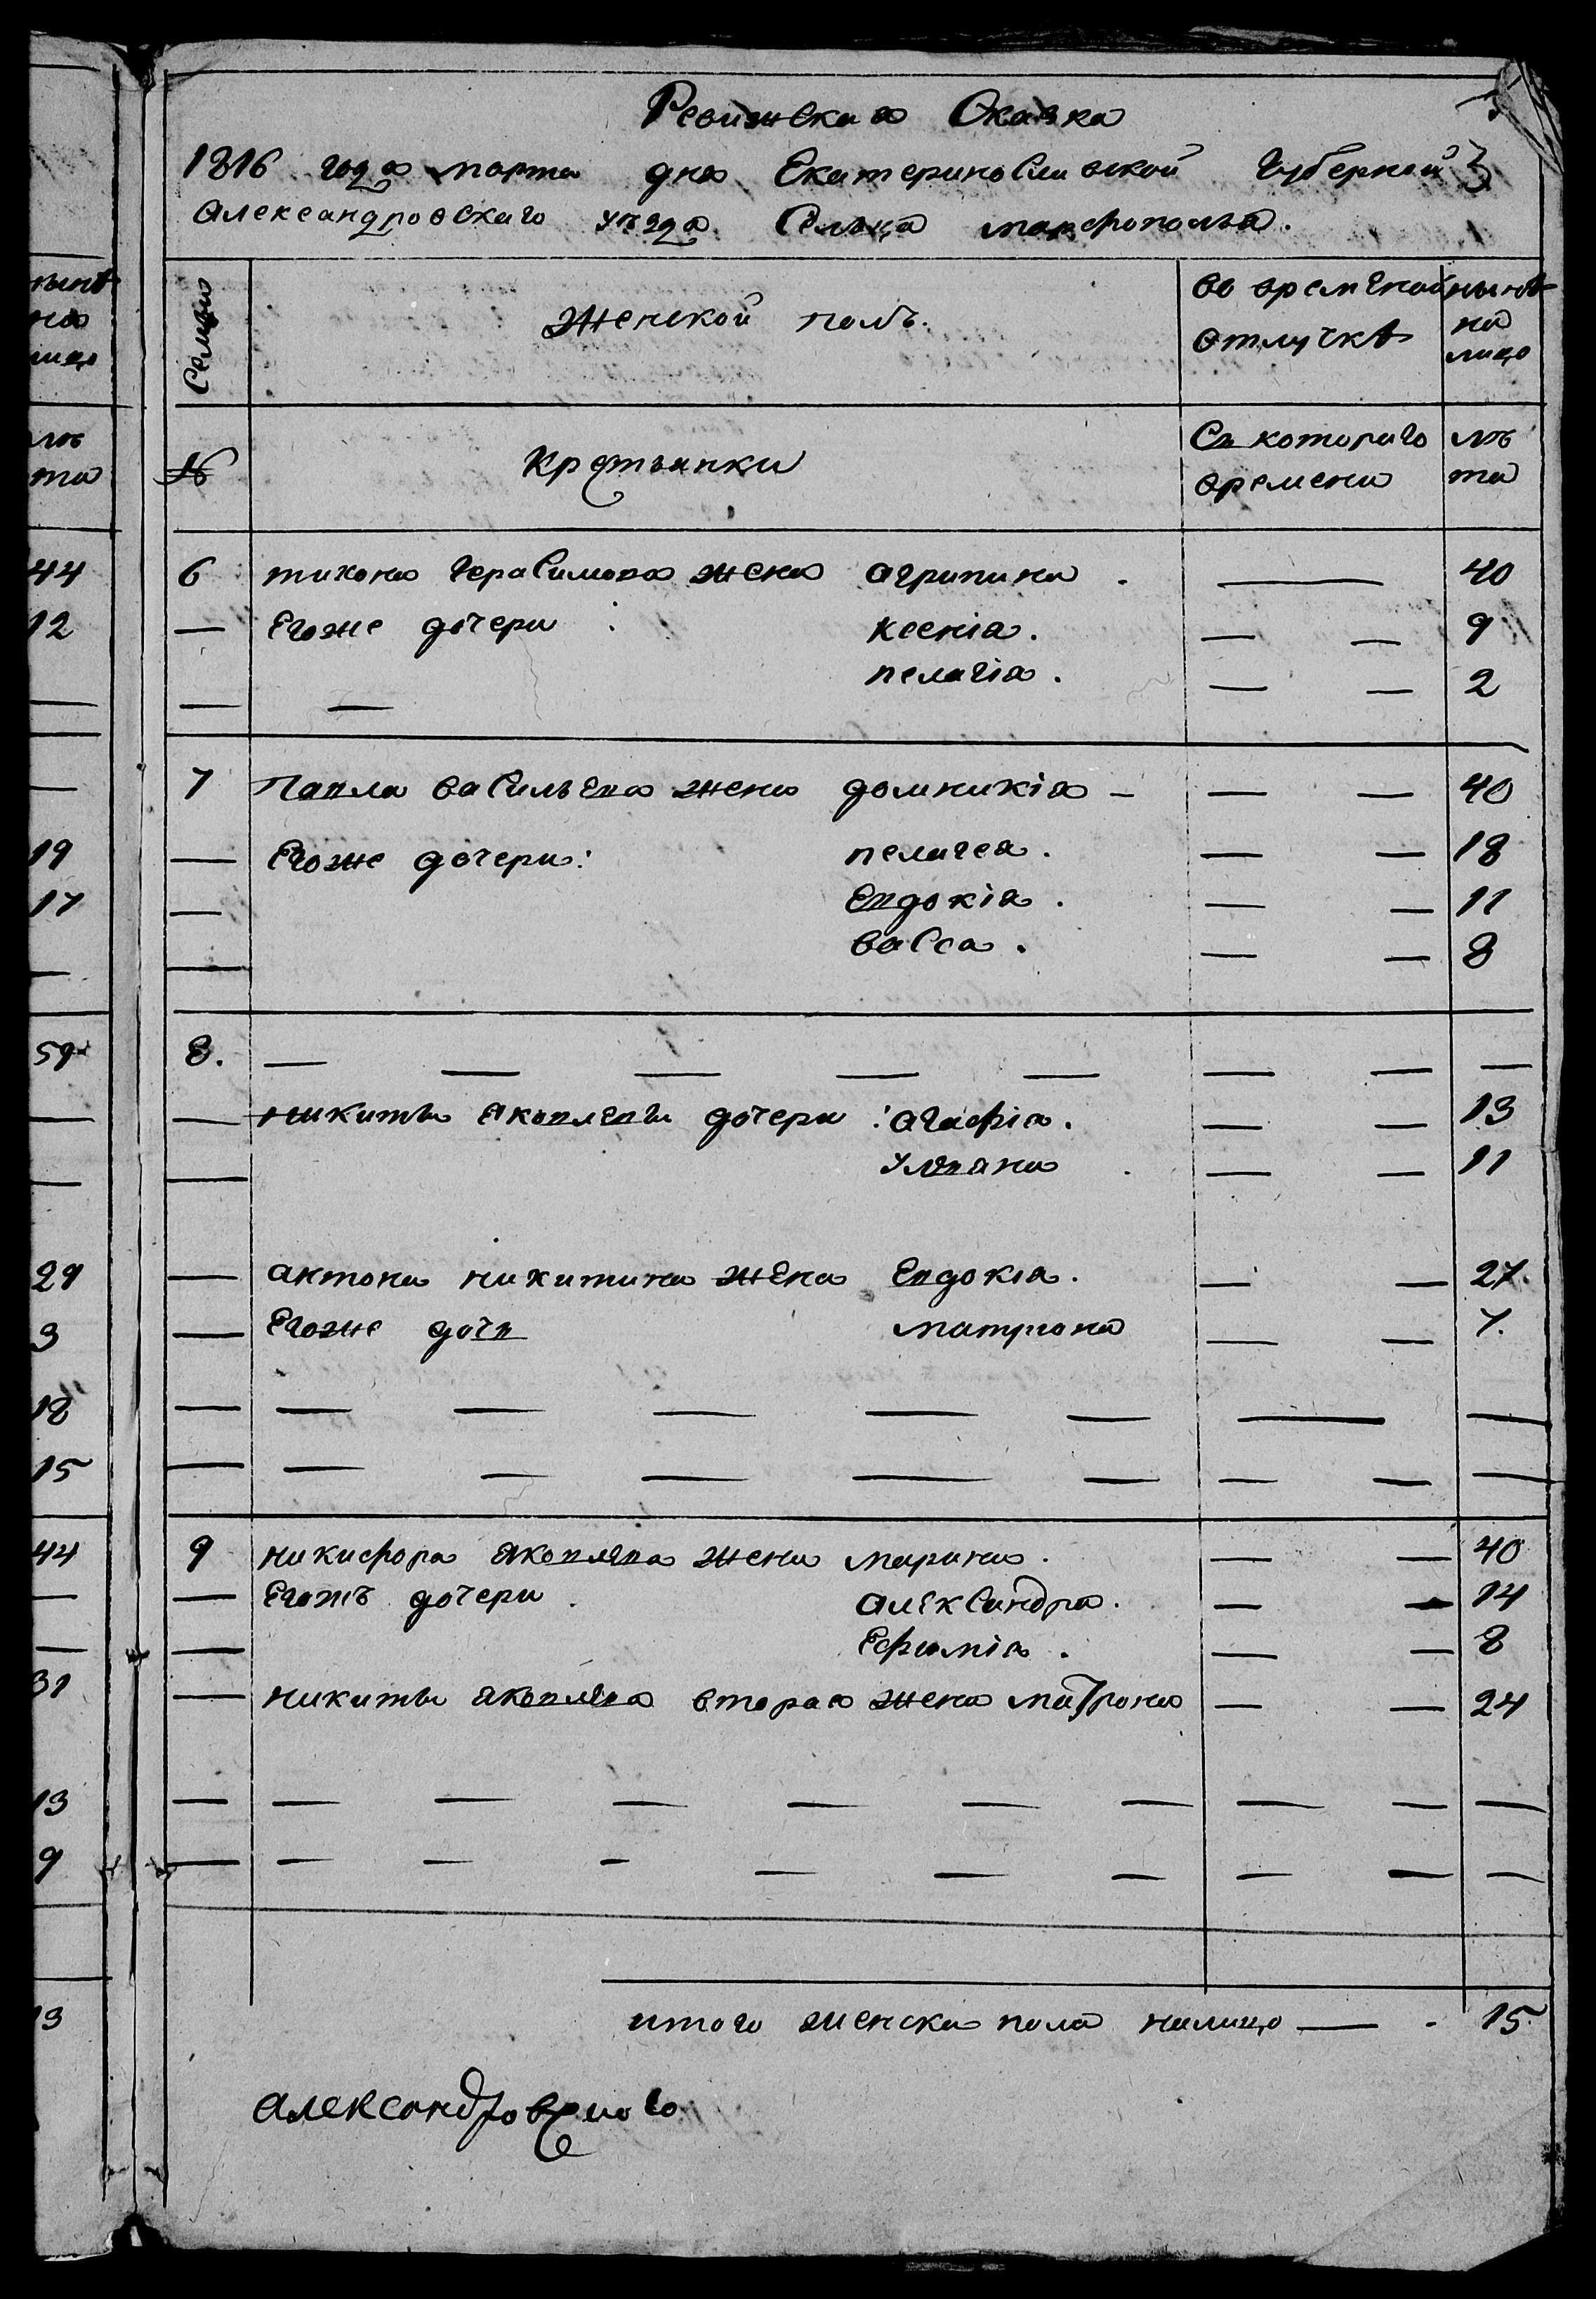 Ревижская Сказка
1816 года марта дня Екатеринославской Губернии
Александровскаго уѣзда Сельца марфополья.
нынѣ
на
лицо
Семьи
Женской полъ.
во времѣнной
отлучкѣ
нынѣ
на
лицо
лѣ
та
№
Крестьянки
Съ котораго
времени
лѣ
та
44 6 тихона герасимова жена агрипина . — 40
12 — Егоже дочери : ксенія. — — 9
— — — пелагія . — — 2
— 7 Павла васильева жена домникія — — — 40
19 — Егоже дочери: пелагея . — — 18
17 — Евдокія . — — 11
— — васса . — — 8
59 8. — — — — — — — —
— — никиты яковлевы дочери : агафія. — — 13
— — Ульяна . — — 11
29 — антона никитина жена Евдокіа. — — 27.
3 — Егоже дочь матрона — — 7.
18 — — — — — — — —
15 — — — — — — — — —
44 9 никифора яковлева жена марина. — — 40
— — Егожъ дочери . александра. — — 14
— — Ефимія . — — 8
31 — никиты яковлева вторая жена матрона — — 24
13 — — — — — — — — — —
9 — — — — — — — — — —
13
итого женска пола налицо — - 15
Александровскаго